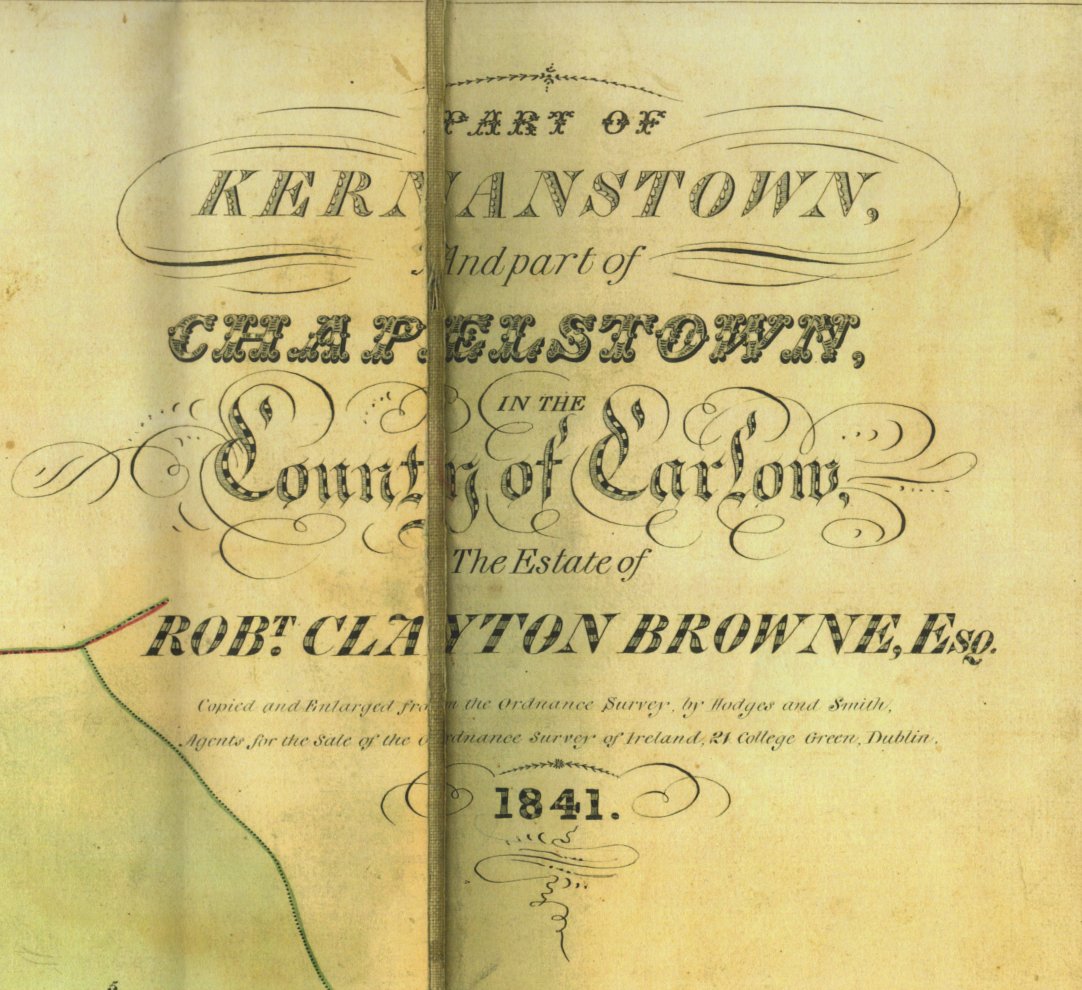 PART OF
KERNANSTOWN,
And part of
CHAPELSTOWN,
IN THE
County of Carlow,
The Estate of
ROBT. CLAYTON BROWNE, ESQ.
Copied and Enlarged from the Ordnance Survey, by Hodges and Smith,
Agents for the Sale of the Ordnance Survey of Ireland, 21 College Green, Dublin.
1841.
5